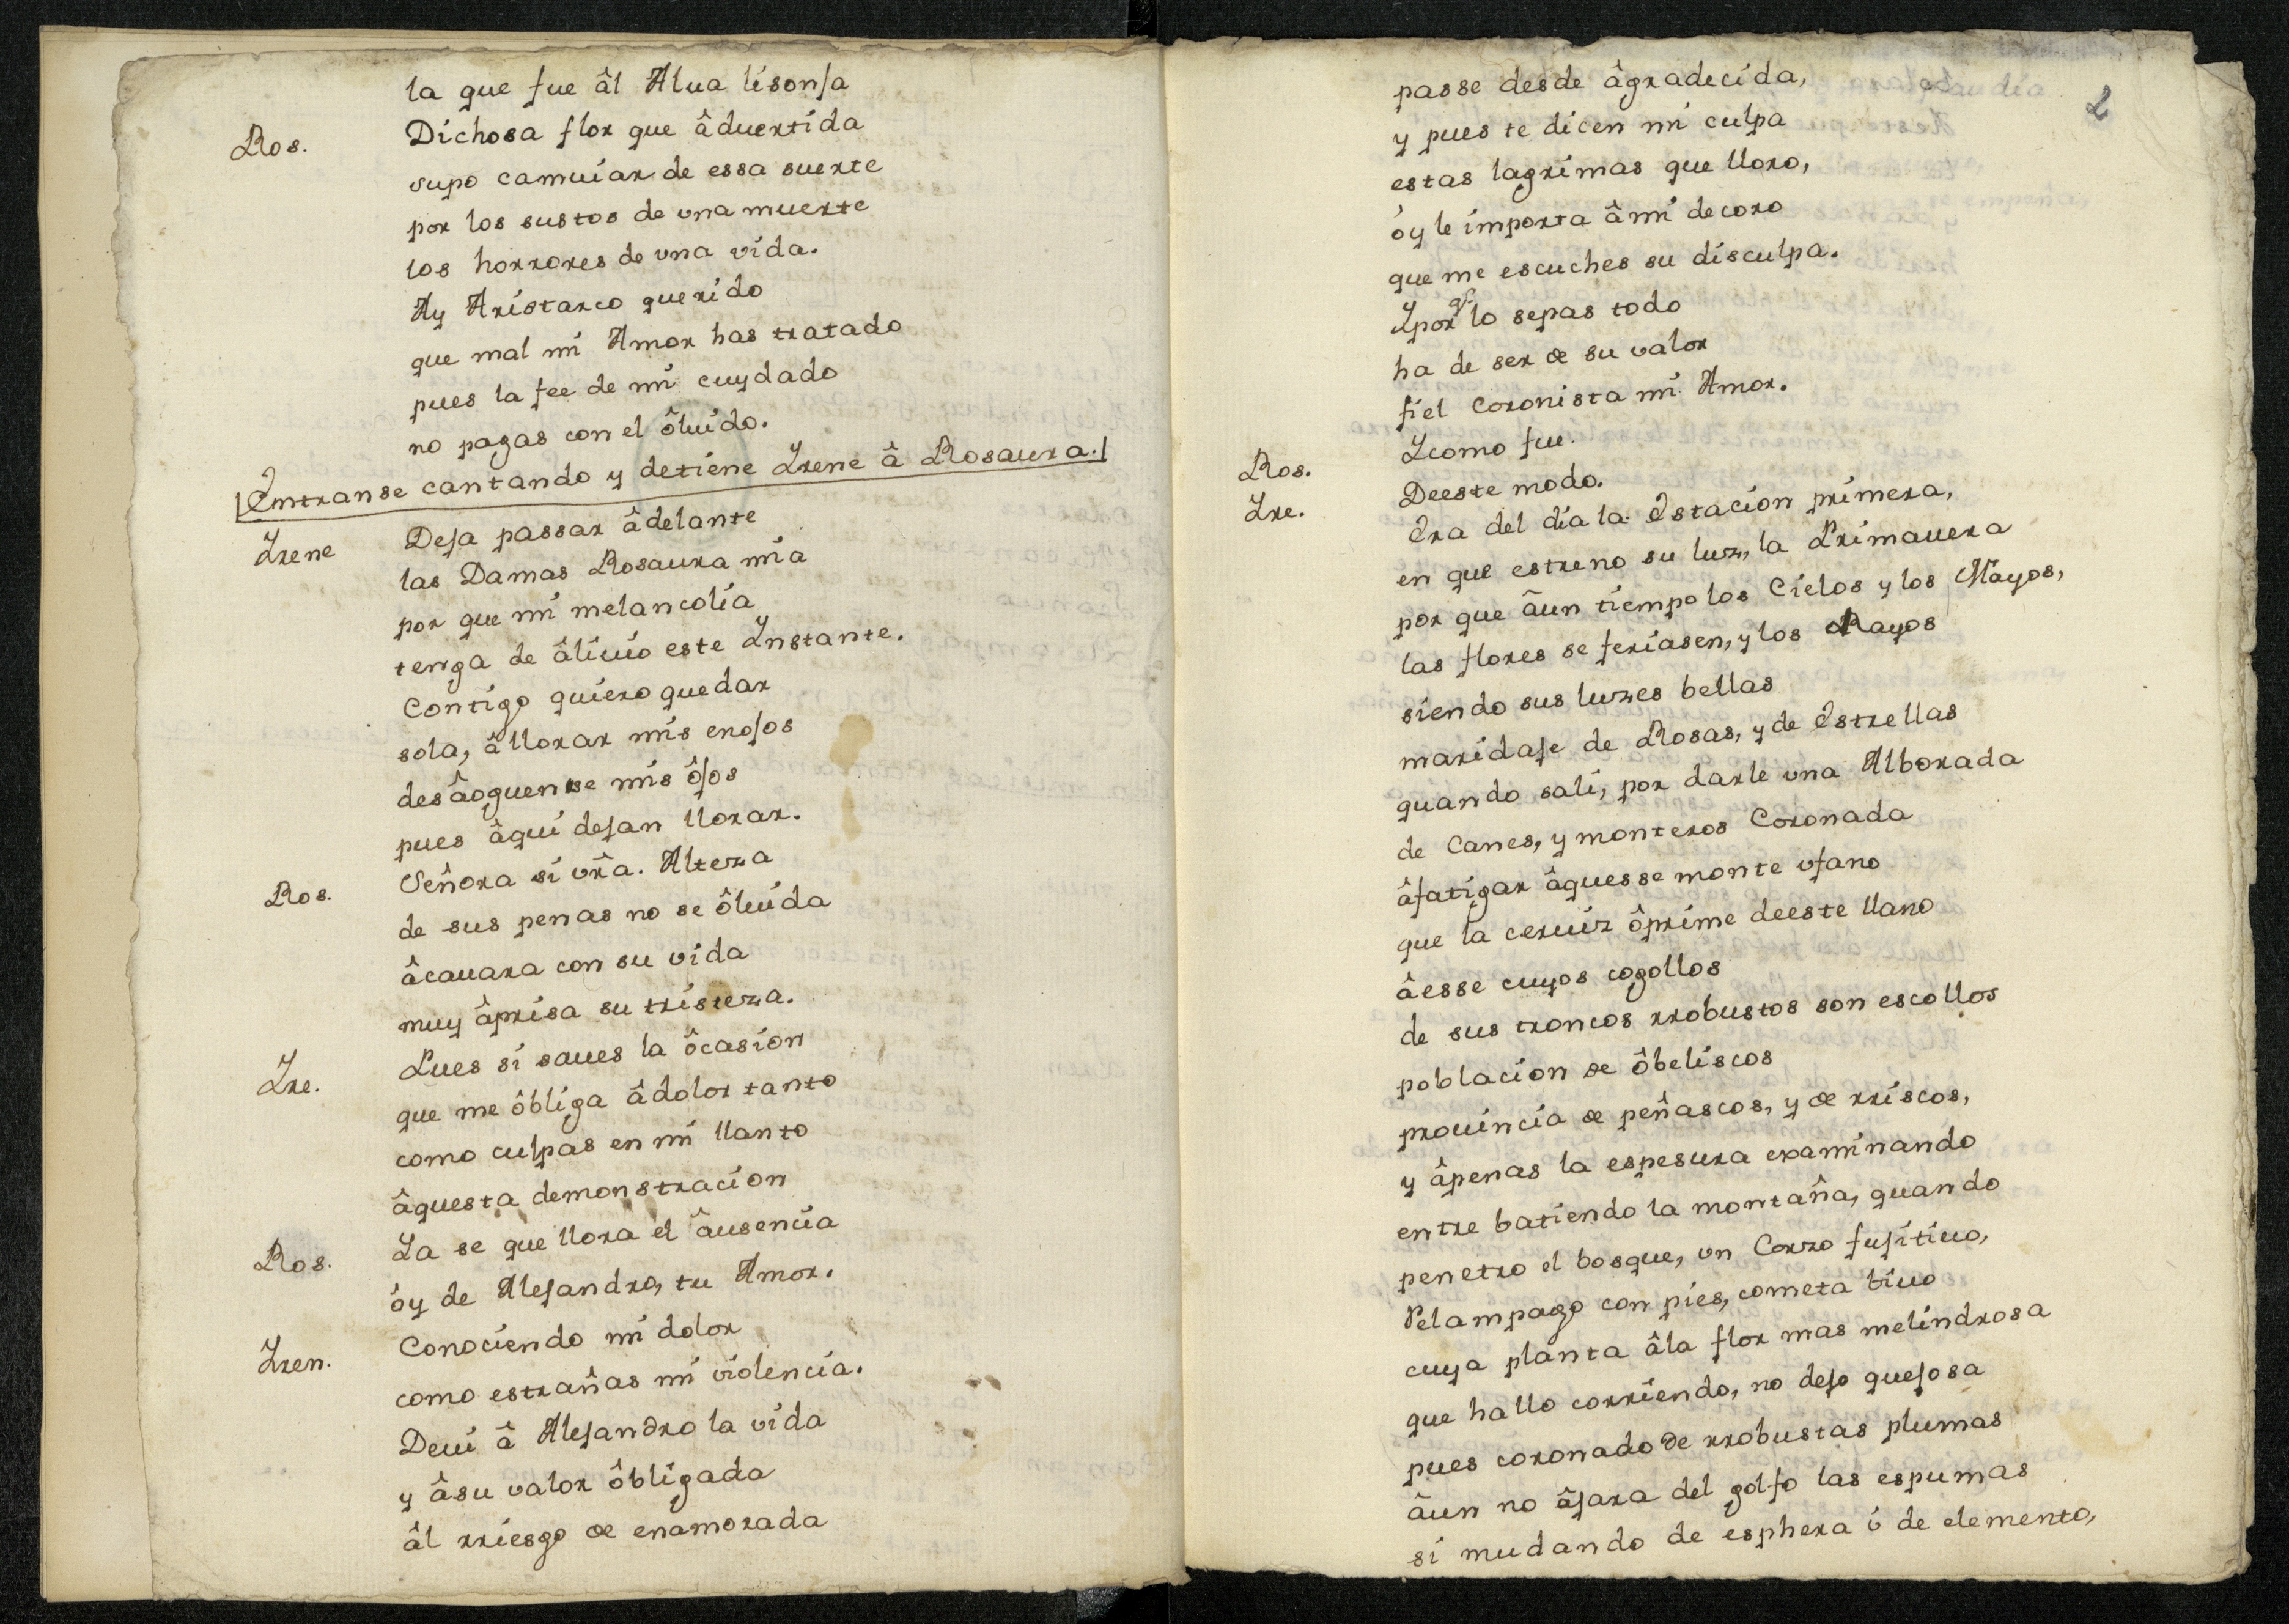 la que fue âl Alua lisonja
Ros. Dichosa flor que âduertida
supo camuiar de essa suerte
por los sustos de vna muerte
los horrores de vna vida.
Ay Aristarco querido
que mal mi Amor has tratado
pues la fee de mi cuydado
no pagas con el ôluido.
Entranse cantando y detiene Irene â Rosaura.
Irene Deja passar âdelante
las Damas Rosaura mia
por que mi melancolia
tenga de âliuio este Instante.
Contigo quiero quedar
sola, âllorar mis enojos
desâoguense mis ôjos
pues âqui dejan llorar.
Ros. Señora si vrâ. Alteza
de sus penas no se ôluida
âcauara con su vida
muy âprisa su tristeza.
Ire. Pues si saues la ôcasion
que me ôbliga âdolor tanto
como culpas en mi llanto
âquesta demonstracion
Ros. Ya se que llora el âusencia
óy de Alejandro, tu Amor.
Iren. Conociendo mi dolor
como estrañas mi violencia.
Deui â Alejandro la vida
y âsu valor ôbligada
âl rriesgo de enamorada
2
passe desde âgradecida,
y pues te dicen mi culpa
estas lagrimas que lloro,
óy le importa âmi decoro
que me escuches su disculpa.
Ypor q̃ lo sepas todo
ha de ser de su valor
fiel Coronista mi Amor.
Ros. Ycomo fue.
Ire. Deeste modo.
Era del dia la Estacion primera,
en que estreno su luz, la Primauera
por que âun tiempo los Cielos y los Mayos,
las flores se feriasen, y los Rayos
siendo sus luzes bellas
maridaje de Rosas, y de Estrellas
quando sali, por darle vna Alborada
de Canes, y monteros Coronada
âfatigar âquesse monte vfano
que la ceruiz ôprime deeste llano
âesse cuyos cogollos
de sus troncos rrobustos son escollos
poblacion de ôbeliscos
prouincia de peñascos, y de rriscos,
y âpenas la espesura examinando
entre batiendo la montaña, quando
penetro el bosque, vn Corzo fujitiuo,
Relampago con pies, cometa biuo
cuya planta âla flor mas melindrosa
que hallo corriendo, no dejo quejosa
pues coronado de rrobustas plumas
âun no âjara del golfo las espumas
si mudando de esphera ó de elemento,